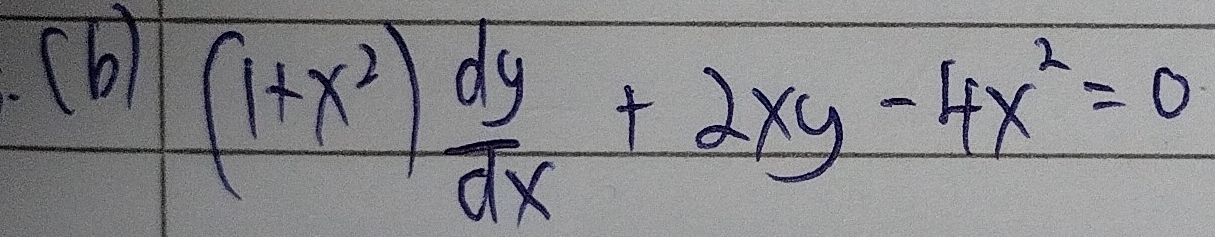 (b) (1+x²) dy/dx + 2xy - 4x² = 0